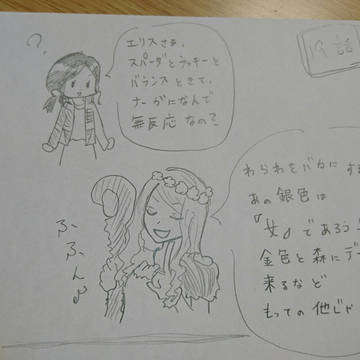 19話
?
エリスさぁ、
スパーダとラッキーと
バランスときて、
ナーガになんで
無反応なの?
わらわをバカにす
あの銀色は
『女』であろう
金色と森にデー
来るなど
もっての他じゃ
ふふん♪